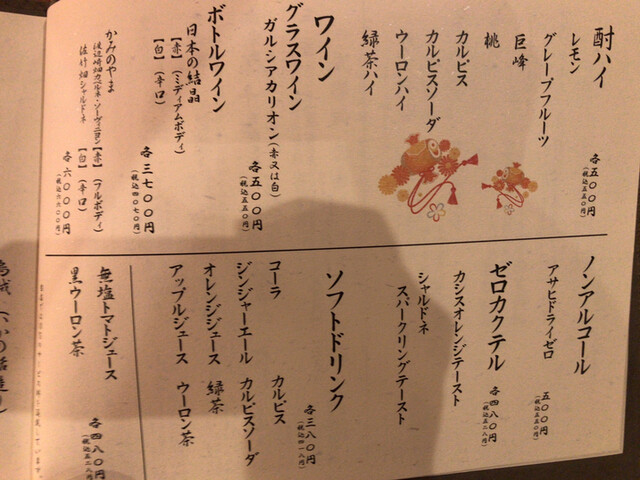 酎ハイ
レモン
グレープフルーツ
巨峰
桃
カルピス
カルピスソーダ
ウーロンハイ
緑茶ハイ
各五〇〇円
(税込五五〇円)
ワイン
グラスワイン
ガルシアカリオン(赤又は白)
各五〇〇円
(税込五五〇円)
ボトルワイン
日本の結晶
【赤】(ミディアムボディ)
【白】(辛口)
各三七〇〇円
(税込四〇七〇円)
かみのやま
渡辺崎畑カベルネ・ソーヴィニヨン【赤】(フルボディ)
佐竹畑シャルドネ【白】(辛口)
各六〇〇〇円
(税込六六〇〇円)
ノンアルコール
アサヒドライゼロ
五〇〇円
(税込五五〇円)
ゼロカクテル
カシスオレンジテースト
シャルドネ
スパークリングテースト
各四八〇円
(税込五二八円)
ソフトドリンク
コーラ
カルピス
ジンジャーエール
カルピスソーダ
オレンジジュース
緑茶
アップルジュース
ウーロン茶
各三八〇円
(税込四一八円)
無塩トマトジュース
黒ウーロン茶
各四八〇円
(税込五二八円)